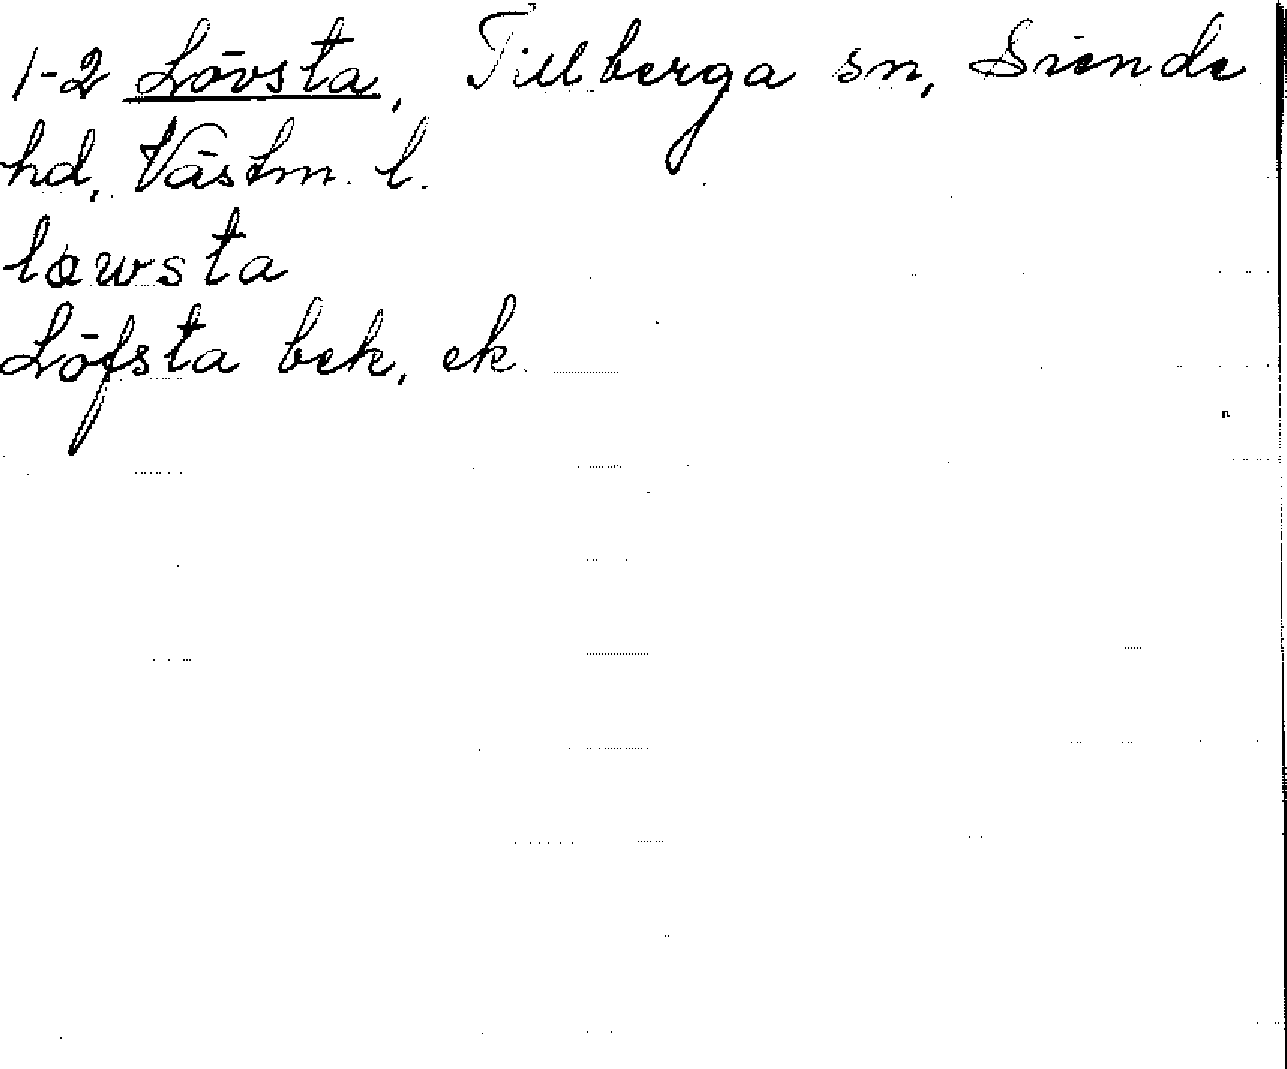 1-2 Lövsta, Tillberga sn, Siende
hd, Västm. l.
låwsta
Löfsta bek, ek.